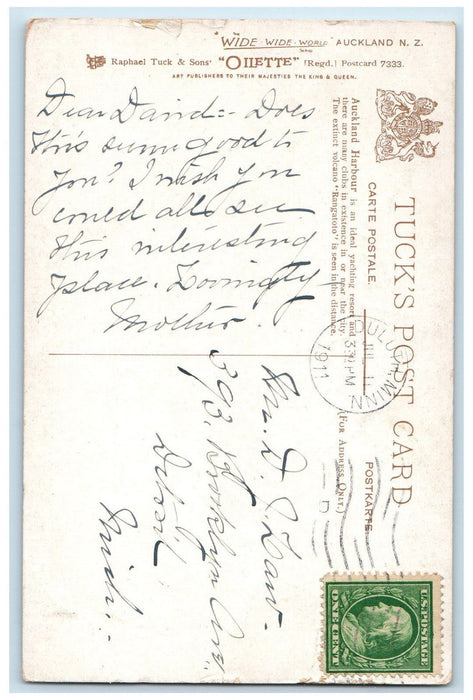 "WIDE-WIDE-WORLD AUCKLAND N. Z.
Raphael Tuck & Sons' "OILETTE" [Regd.] Postcard 7333.
ART PUBLISHERS TO THEIR MAJESTIES THE KING & QUEEN.
Dear David:- Does
this seem good to
you? I wish you
could all see
this interesting
place. Lovingly-
Mother.
Auckland Harbour is an ideal yachting resort and
there are many clubs in existence in or near the city.
The extinct volcano "Rangatoto" is seen in the distance.
CARTE POSTALE
TUCK'S POST CARD
(FOR ADDRESS ONLY.)
POSTKARTE
DULUTH, MINN
JUL 11
330 PM
1911
Mr. D. J. Law-
393. Brooklyn Ave
Detroit
Mich.-
U.S. POSTAGE
ONE CENT